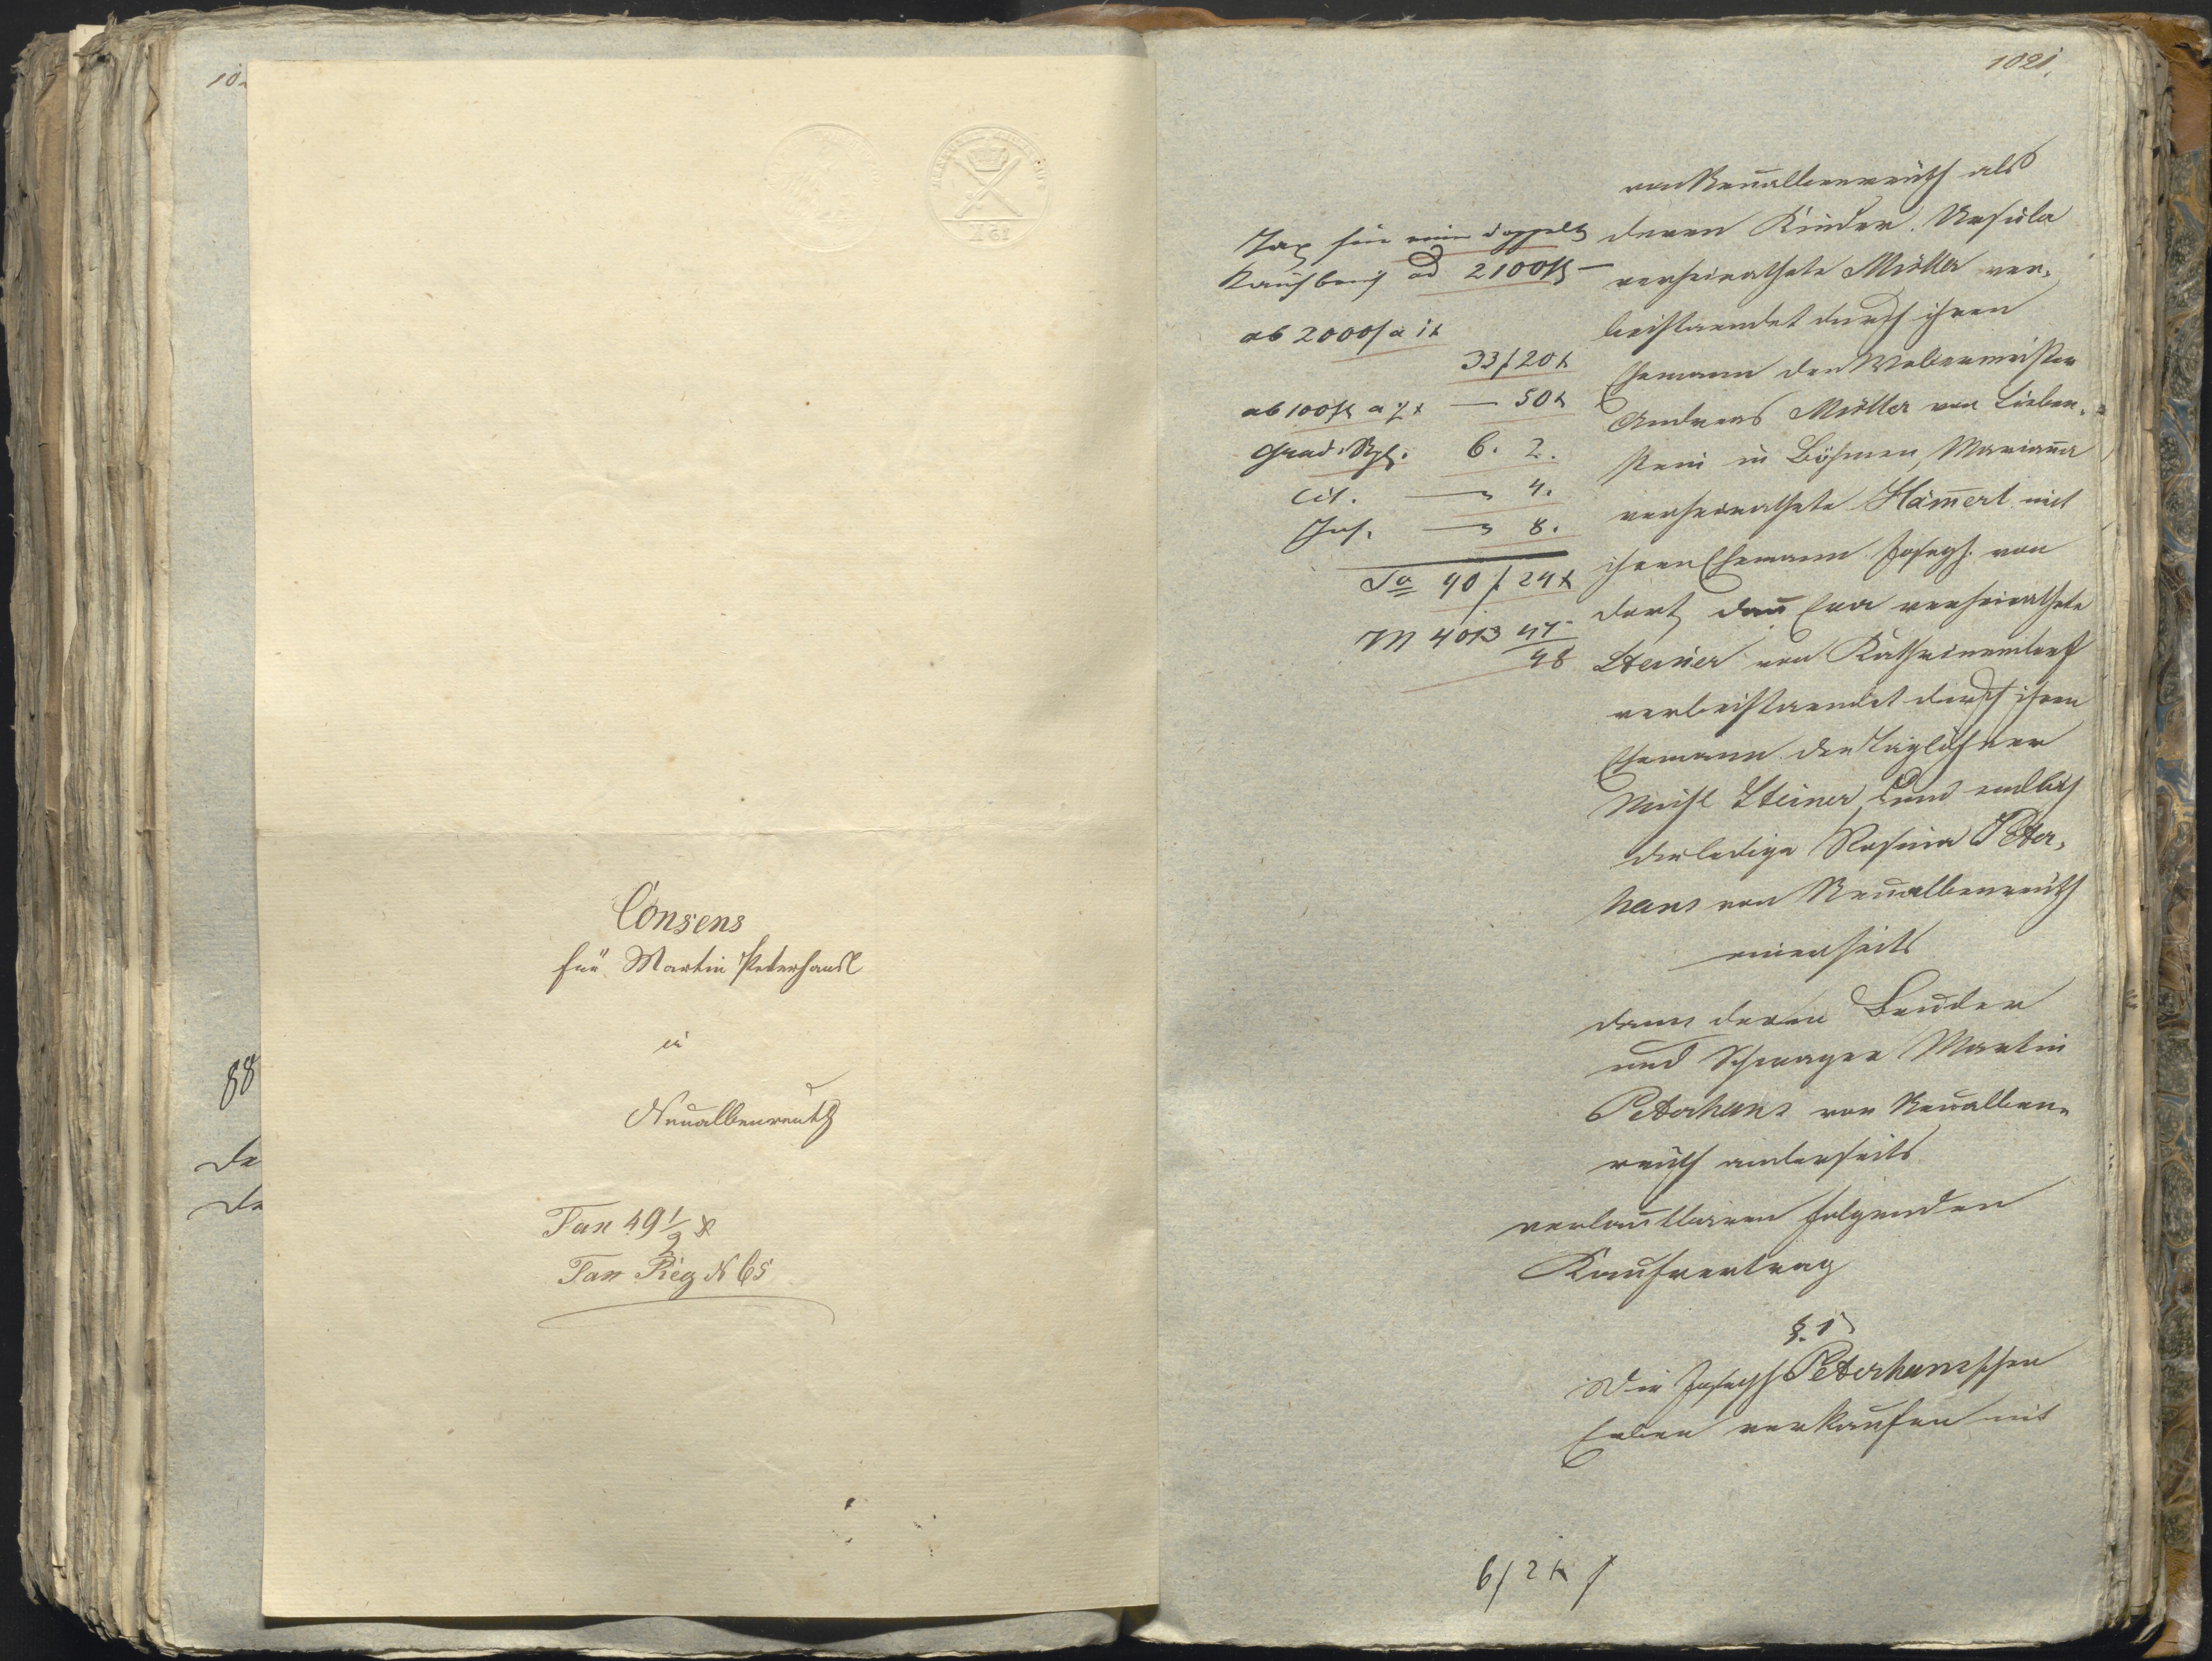 102
88
De
De
Consens
für Martin Peterhansl
in
Neualbenreuth
Tax 49 1/2 x
Tax Reg N 65
1021.
Tax für eine doppelte
Kaufbrief ad 2100 fl –
ab 2000 f a 1 x
33 f 20 x
ab 100 fl a ½ x — 50 x
Grad. Spl. 6. 2.
Cit. — 4.
Ins. — 8.
Sa 40 f 24 x
M 4013 47/48
von Neualbenreuth als
deren Kinder. Ursula
verheirathete Müller ver-
beistaendet durch ihren
Ehemann den Webermeister
Andreas Müller von Lieben-
stein in Böhmen, Marianna
verheirathete Ham̄erl mit
ihren Ehemann Joseph von
dort, dan̄ Eva verheirathete
Steiner von Kathrinendorf
verbeistaendet durch ihren
Ehemann den Taglöhner
Michl Steiner, und endlich
die ledige Rosina Peter-
hans von Neualbenreuth
einerseits
dann deren Bruder
und Schwager Martin
Peterhans von Neualben-
reuth anderseits
verlautbaren folgenden
Kaufvertrag
§. 1
Die Joseph Peterhansschen
Erben verkaufen mit
6 f 2 x